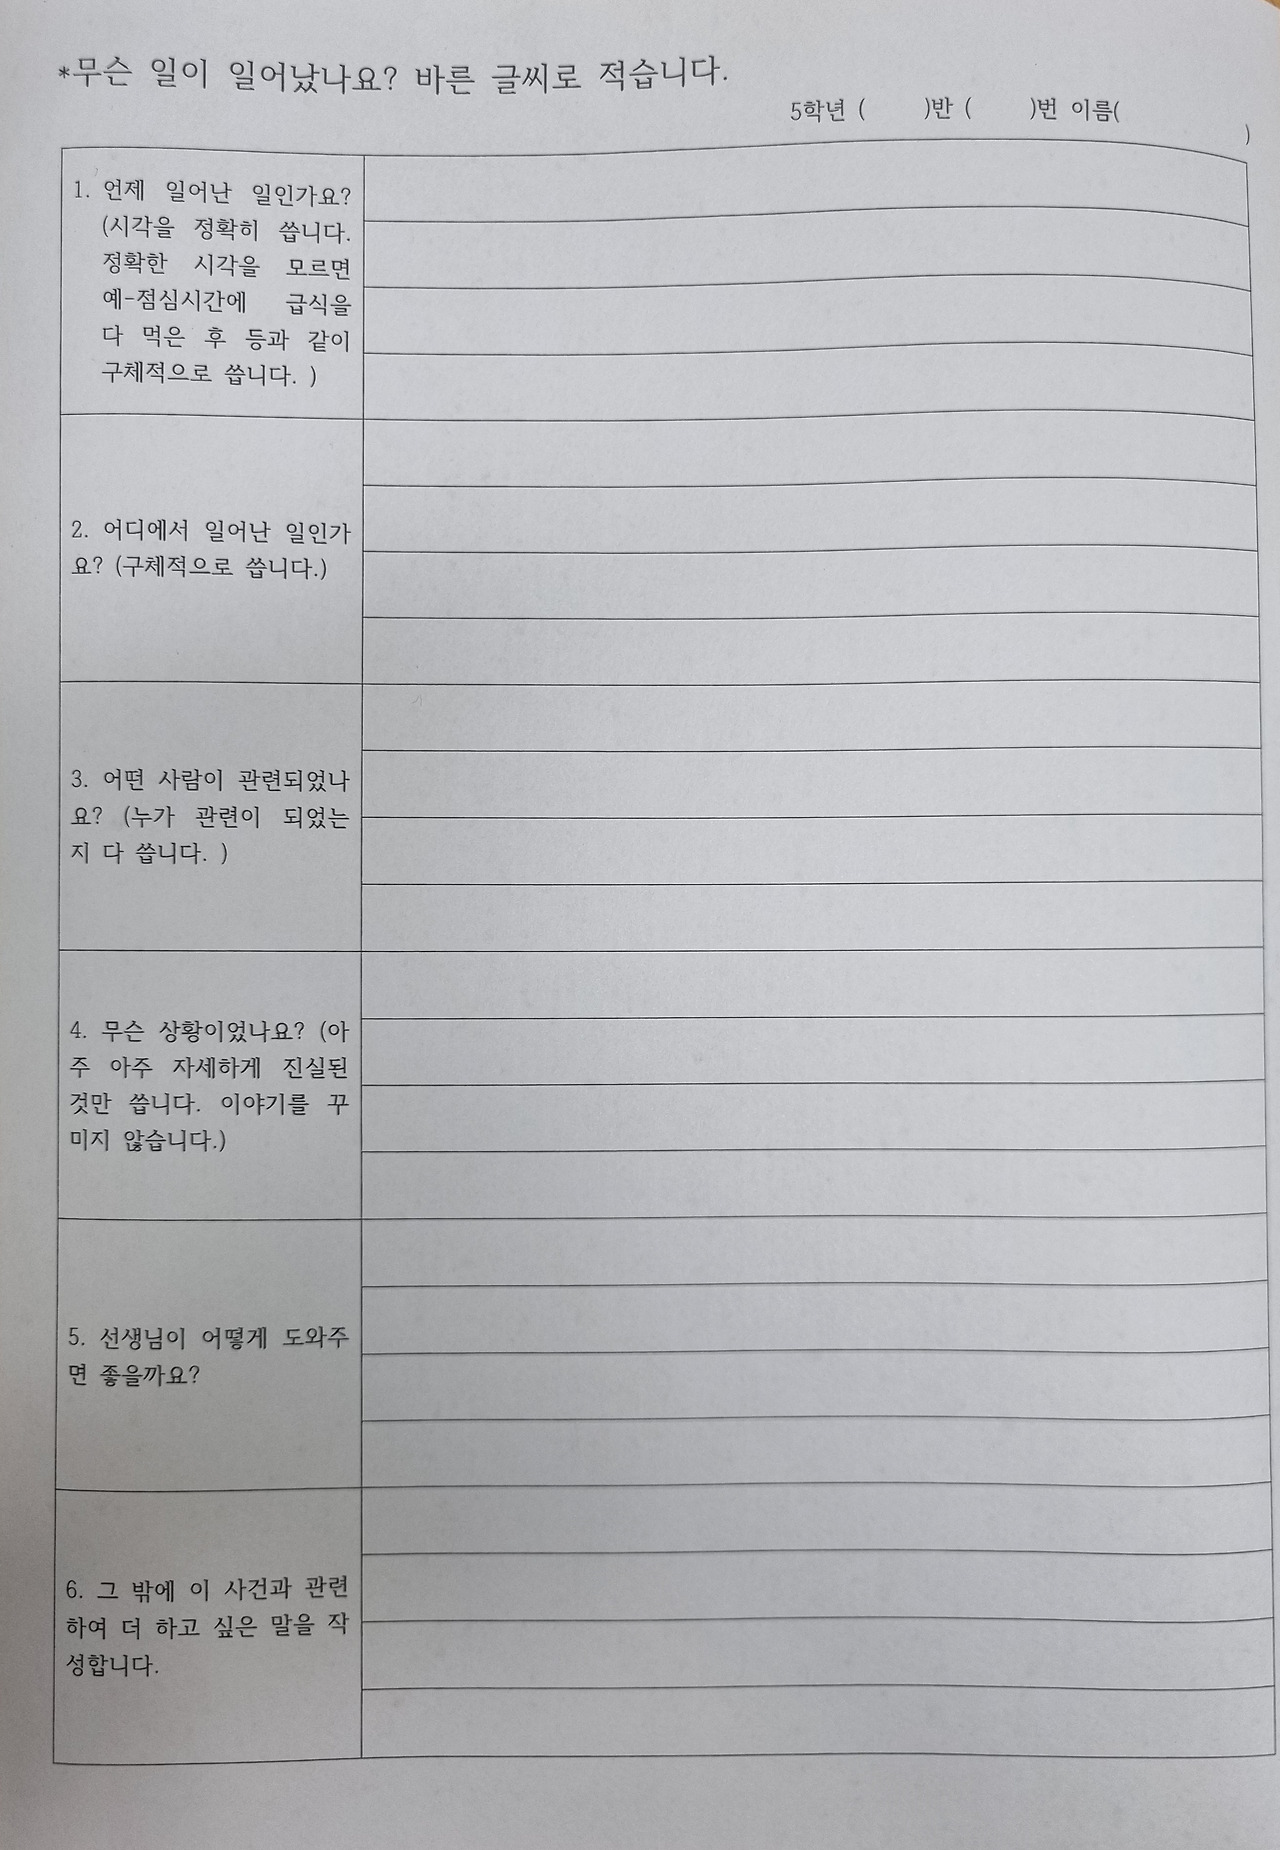 *무슨 일이 일어났나요? 바른 글씨로 적습니다.
5학년 ( )반 ( )번 이름( )
1. 언제 일어난 일인가요?
(시각을 정확히 씁니다.
정확한 시각을 모르면
예-점심시간에 급식을
다 먹은 후 등과 같이
구체적으로 씁니다. )
2. 어디에서 일어난 일인가
요? (구체적으로 씁니다.)
3. 어떤 사람이 관련되었나
요? (누가 관련이 되었는
지 다 씁니다. )
4. 무슨 상황이었나요? (아
주 아주 자세하게 진실된
것만 씁니다. 이야기를 꾸
미지 않습니다.)
5. 선생님이 어떻게 도와주
면 좋을까요?
6. 그 밖에 이 사건과 관련
하여 더 하고 싶은 말을 작
성합니다.